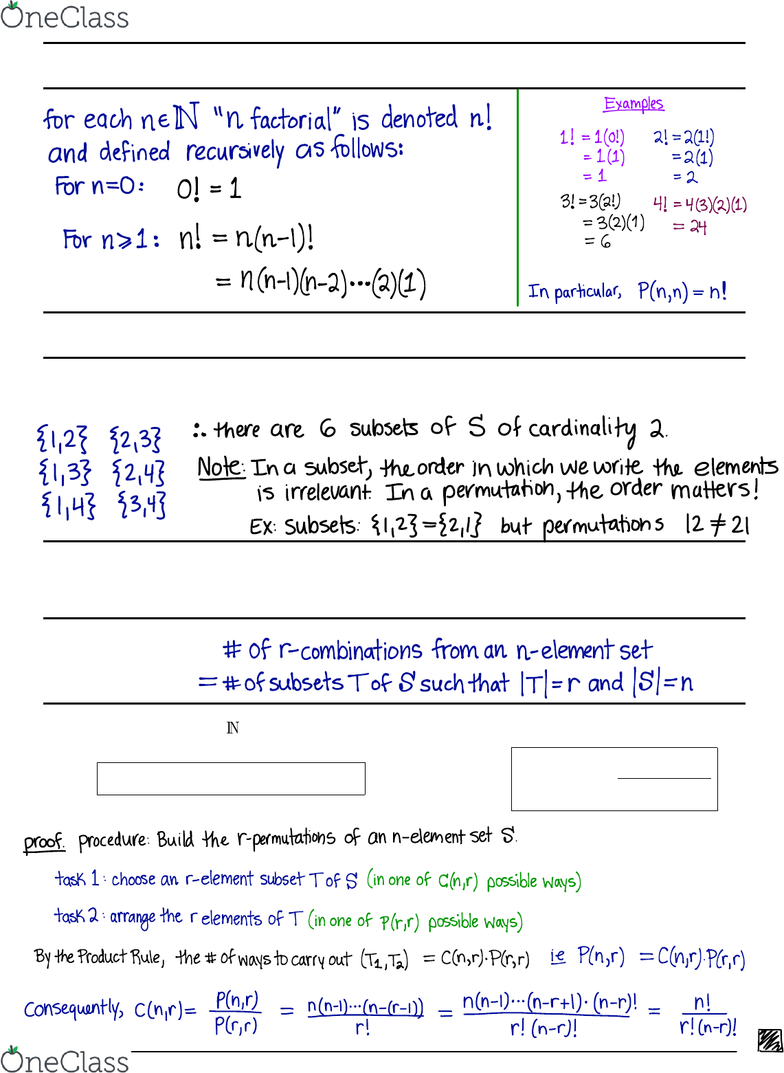 OneClass
for each n∈ℕ "n factorial" is denoted n!
and defined recursively as follows:
For n=0: 0! = 1
For n⩾1: n! = n(n-1)!
= n(n-1)(n-2)···(2)(1)
Examples
1! = 1(0!)
= 1(1)
= 1
2! = 2(1!)
= 2(1)
= 2
3! = 3(2!)
= 3(2)(1)
= 6
4! = 4(3)(2)(1)
= 24
In particular, P(n,n) = n!
{1,2} {2,3}
{1,3} {2,4}
{1,4} {3,4}
∴ there are 6 subsets of S of cardinality 2.
Note: In a subset, the order in which we write the elements
is irrelevant. In a permutation, the order matters!
Ex: subsets: {1,2}={2,1} but permutations 12 ≠ 21
# of r-combinations from an n-element set
= # of subsets T of S such that |T|=r and |S|=n
ℕ
proof. procedure: Build the r-permutations of an n-element set S.
task 1: choose an r-element subset T of S (in one of C(n,r) possible ways)
task 2: arrange the r elements of T (in one of P(r,r) possible ways)
By the Product Rule, the # of ways to carry out (T₁,T₂) = C(n,r)·P(r,r) ie P(n,r) = C(n,r)·P(r,r)
Consequently, C(n,r) = P(n,r)/P(r,r) = n(n-1)···(n-(r-1))/r! = n(n-1)···(n-r+1)·(n-r)!/r!(n-r)! = n!/r!(n-r)!
OneClass